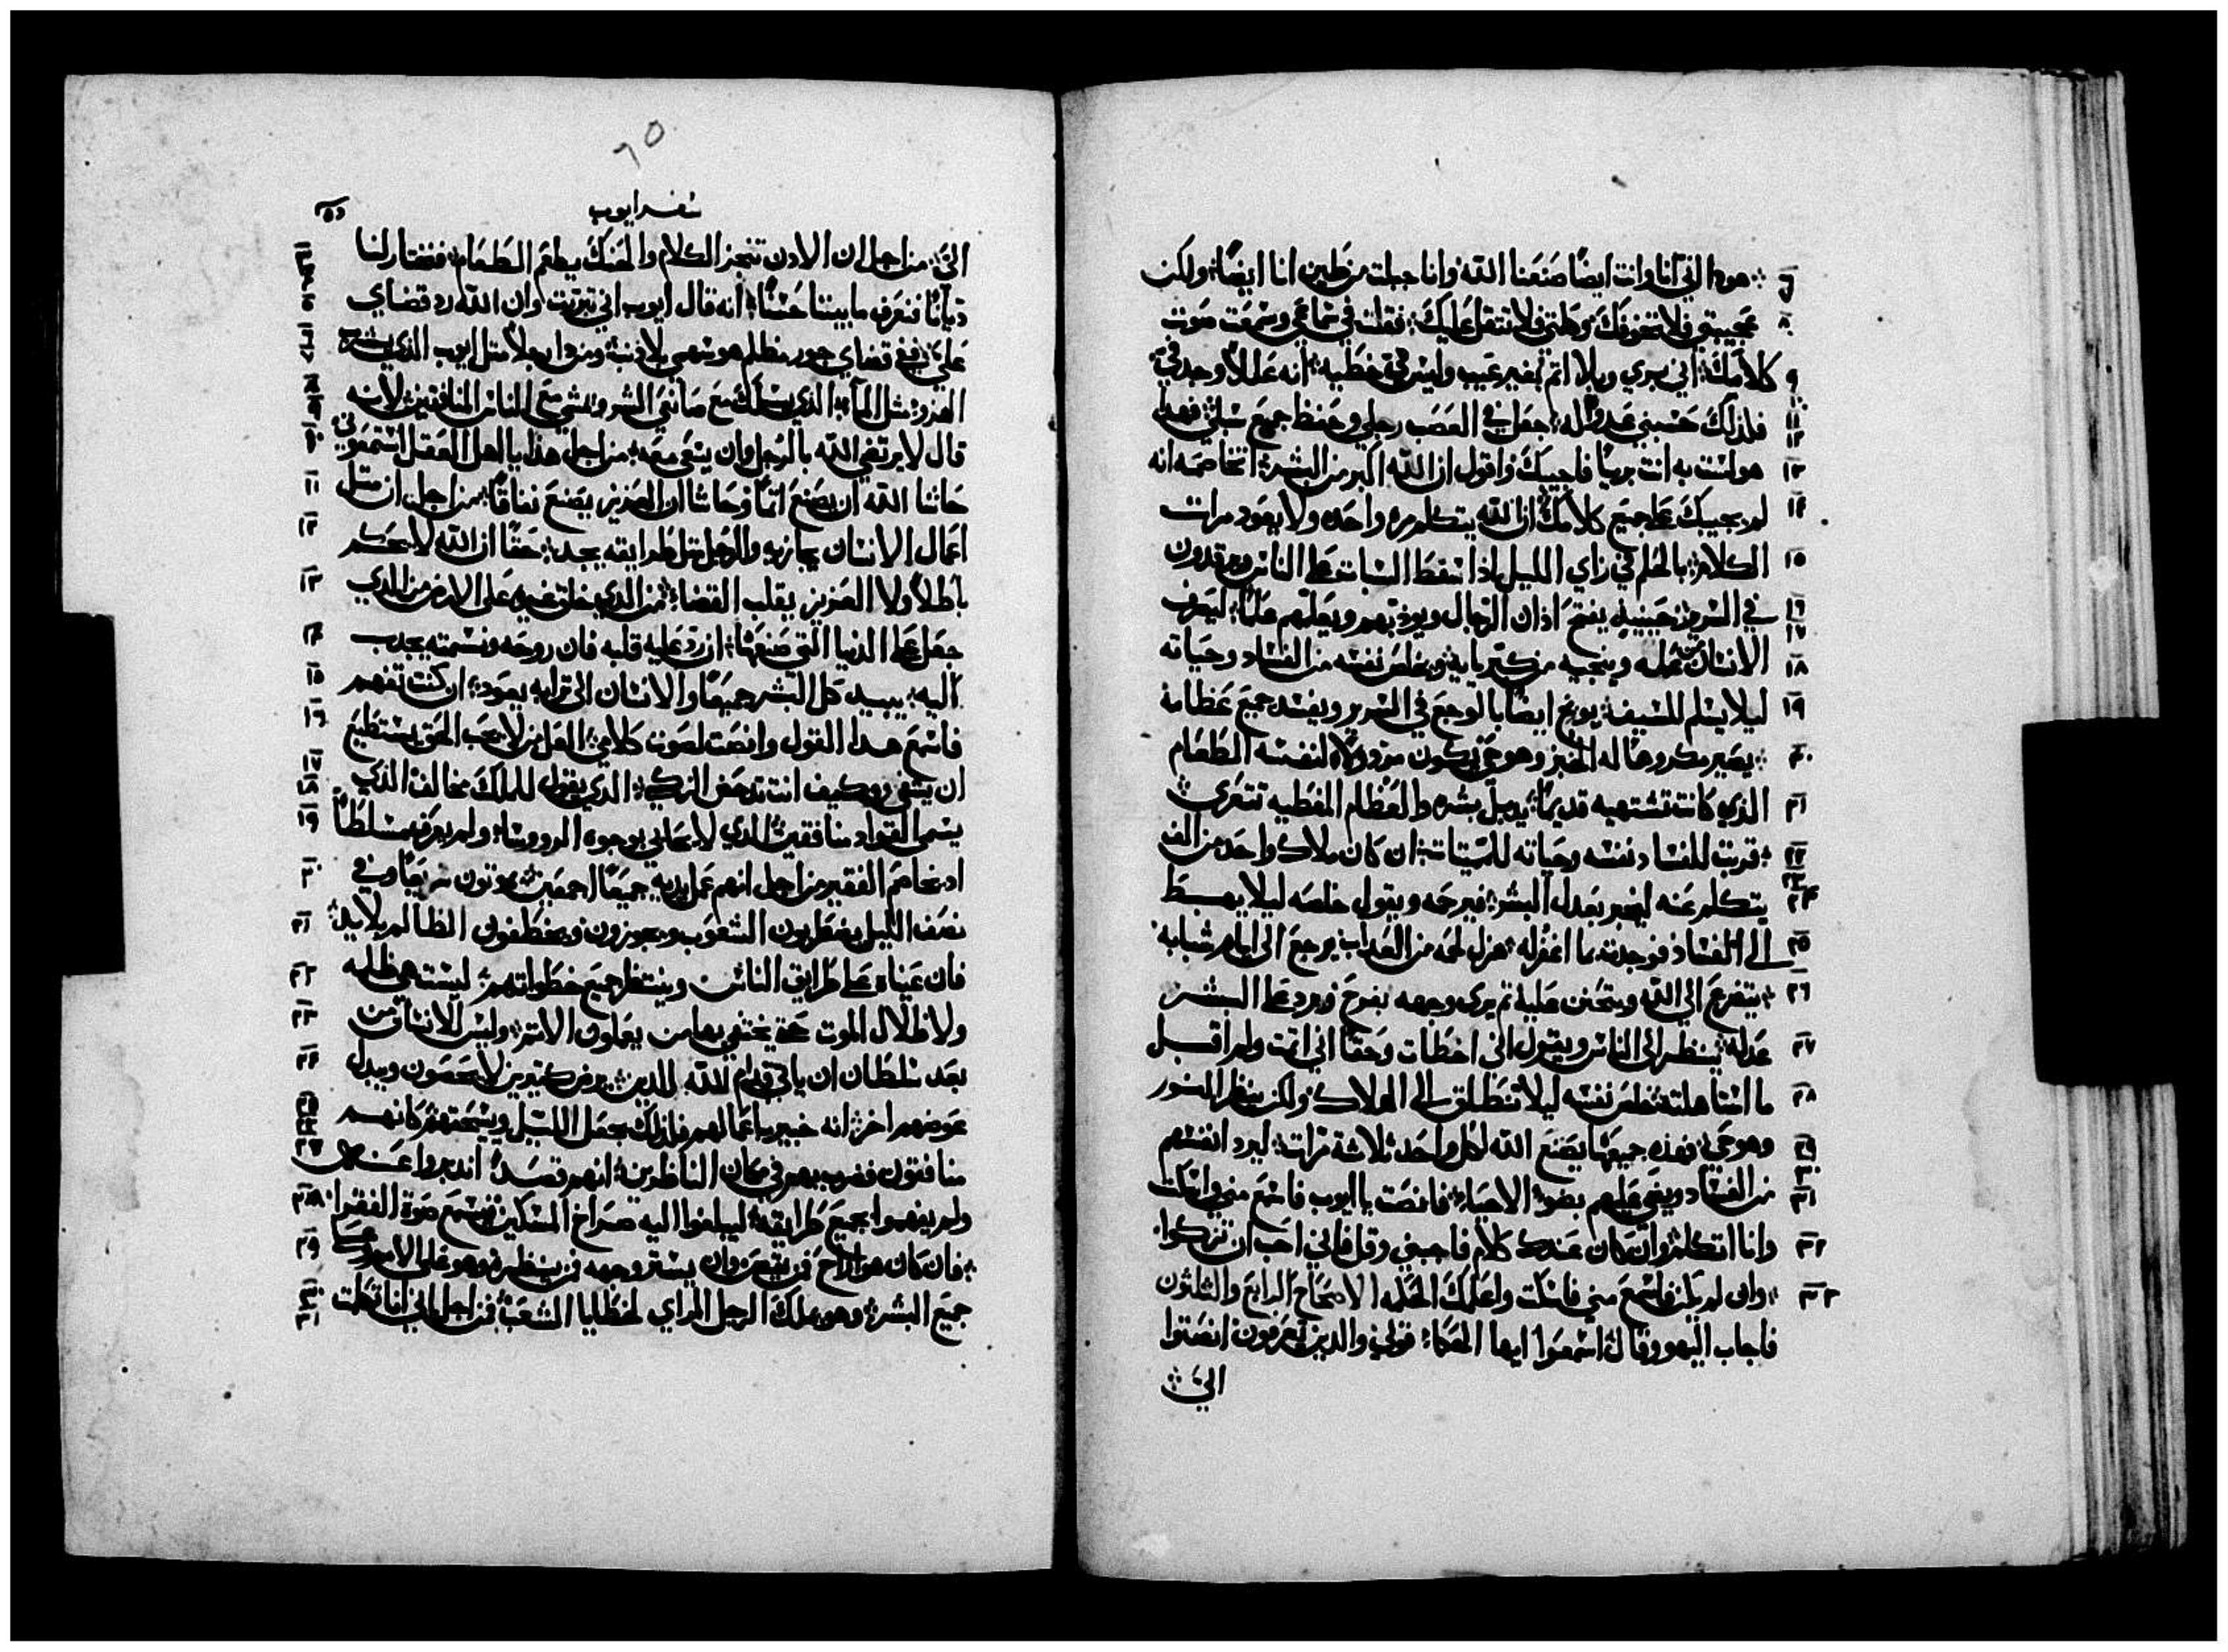 هودا اني انا وانت ايضًا صنعنا الله وانا جبلت من طين انا ايضًا ولكن ٦
عجيبتي فلا تخوفك وبلاغتي فلا تثقل عليك فقلت في سماعي وسمعت صوت ٨
كلامك اني بري وبلا اثم بغير عيب وليس في خطيه انه عللاً وجد في ٩
فلذلك حسبني عدوًا له جعل في العصب رجلي وحفظ جميع سبلي فهذا ١١ ١٢
هو لست به انت بريًا فاجيبك واقول ان الله اكبر من البشر اتخاصمه انه ١٣
لم يجيبك على جميع كلامك ان الله يتكلم مره واحده ولا يعود مرات ١٤
الكلام بالحلم في راي الليل اذا سقط السبات على الناس ويرقدون ١٥
في السرير حينيذ يفتح اذان الرجال ويودبهم ويعلمهم علمًا ليصرف ١٦ ١٧
الانسان عن عمله وينجيه من كبريايه ويخلص نفسه من الفساد وحياته ١٨
ليلا يسلم للسيف يوبخ ايضًا بالوجع في السرير ويفسد جميع عظامه ١٩
يصير مكروهًا له الخبز وهو حي يكون مرذولاً لنفسه الطعام ٢٠
الذي كانت تشتهيه قديمًا يدبل بشره والعظام المغطيه تتعري ٢١
قربت للفساد نفسه وحياته للميتات ان كان ملاك واحد من الف ٢٢ ٢٣
يتكلم عنه ليخبر بعدل البشر فيرحمه ويقول خلصه ليلا يهبط ٢٤
الى الفساد فوجدت بما اغفر له هزل لحمه من العذاب يرجع الى ايام شبابه ٢٥
يتضرع الي الله ويتحنن عليه ثم يري وجهه بفرح ويرد على البشر ٢٦
عدله ينظر الى الناس ويقول اني اخطات وحقًا اني اثمت ولم اقبل ٢٧
ما استاهلته خلص نفسه ليلا تنطلق الى الهلاك ولكن ينظر النور ٢٨
وهو حي فهذه جميعها يصنع الله لكل واحد ثلاثة مرات ليرد انفسهم ٢٩ ٣٠
من الفساد ويضي عليهم بضو الاحياء فانصت يا ايوب فاسمع مني واسكت ٣١
وانا اتكلم وان كان عندك كلام فاجبني وقل فاني احب ان تزكوا ٣٢
وان لم يكن فاسمع مني فاسكت واعلمك الحكمه الاصحاح الرابع والثلثون ٣٣
فاجاب اليهو وقال اسمعوا ايها الحكماء قولي والذين تعرفون انصتوا
الي
٦٥
سفر ايوب
الي من اجل ان الادن تختبر الكلام والحنك يطعم الطعام فنختار لنا ٣
ديانًا فنعرف ما بيننا حسنًا انه قال ايوب اني تبررت وان الله رد قضاي ٥
علي ففي قضاي جور مظلم هو سهمي بلا دنب من هو الرجل مثل ايوب الذي يشرب ٦ ٧
الهزو مثل الماء الذي يسلك مع صانعي الشر ويمشي مع الناس المنافقين لانه ٨ ٩
قال لا يرتضي الله بالرجل وان يسعى معه من اجل هذا يا اهل العقل استمعوني ١٠
حاشا الله ان يصنع اثمًا وحاشا ان العزيز يصنع نفاقًا من اجل ان مثل ١١
اعمال الانسان يجازيه والرجل مثل طرايقه يجد حقًا ان الله لا يحكم ١٢
باطلاً ولا العزيز يقلب القضا من الذي خلق غيره على الارض من الذي ١٣
جعل على الدنيا التي صنعها ان رد عليه قلبه فان روحه ونسمته يجدب ١٤
اليه يبيد كل البشر جميعًا والانسان الى ترابه يعود ان كنت تفهم ١٥
فاسمع هذا القول وانصت لصوت كلامي العل من لا يحب الحق يستطيع ١٦
ان يشفي وكيف انت تدحض الزكي الذي يقول للملك مخالف الذي ١٧ ١٨
يسمي القواد منافقين الذي لا يحابي بوجوه الروسا ولم يعرف مسلطًا ١٩
اد يخاصم الفقير من اجل انهم عمل يديه جميعًا اجمعين يموتون سريعًا وفي ٢٠
نصف الليل يضطربون الشعوب ويجوزون ويخطفون الظالم بلا يد ٢١
فان عيناه على طرايق الناس وينتظر جميع خطواتهم ليست هي ظلمه ٢٢
ولا ظلال الموت حتى يختفي بها من يعملون الاثم وليس للانسان من ٢٣
بعد سلطان ان ياتي قدام الله للدين يرض كثيرين لا يحصون ويبدل ٢٤
عوضهم اخر انه خبير باعمالهم فلذلك يجعل الليل ويسحقهم كانهم ٢٥ ٢٦
منافقون فضربهم في مكان الناظرين انهم قصدًا اندبروا عنه ٢٧
ولم يفهموا جميع طرايقه ليبلغوا اليه صراخ المسكين ويسمع صوت الفقرا ٢٨
فان كان هو اراح فمن يتعب وان يستر وجهه فمن ينظره وهو على الامم وعلى ٢٩
جميع البشر وهو يملك الرجل المراي لخطايا الشعب فمن اجل اني انا تكلمت ٣٠ ٣١